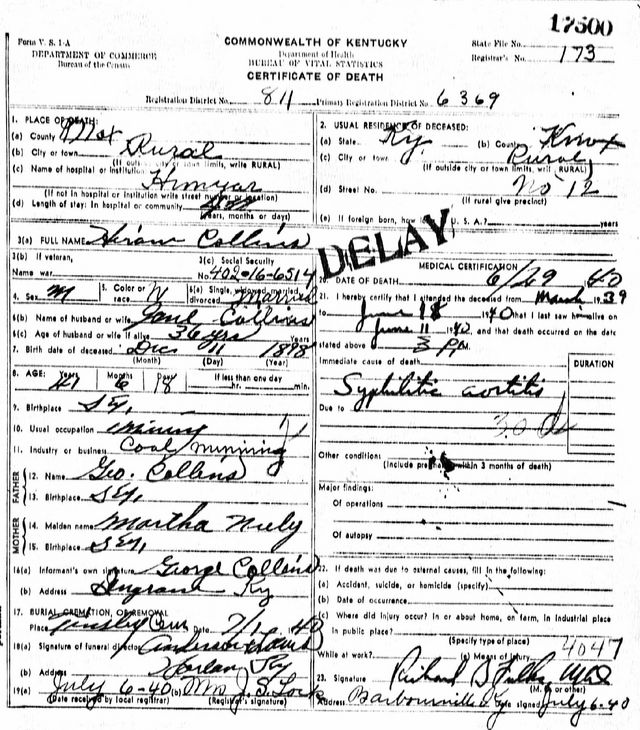 17500
Form V. S. 1-A
DEPARTMENT OF COMMERCE
Bureau of the Census
COMMONWEALTH OF KENTUCKY
Department of Health
BUREAU OF VITAL STATISTICS
CERTIFICATE OF DEATH
State File No.
Registrar's No. 173
Registration District No. 811 Primary Registration District No. 6369
1. PLACE OF DEATH:
(a) County Knox
(b) City or town Rural
(If outside city or town limits, write RURAL)
(c) Name of hospital or institution: Himyar
(If not in hospital or institution write street number or location)
(d) Length of stay: In hospital or community
(years, months or days)
2. USUAL RESIDENCE OF DECEASED:
(a) State Ky (b) County Knox
(c) City or town Rural
(If outside city or town limits, write RURAL)
(d) Street No. No 12
(If rural give precinct)
(e) If foreign born, how U. S. A.? years
DELAY
3(a) FULL NAME Hiram Collins
3(b) If veteran, Name war
3(c) Social Security No. 402-16-6514
4. Sex M 5. Color or race W 6(a) Single, widowed, married, divorced Married
6(b) Name of husband or wife Collins
6(c) Age of husband or wife if alive 36 yrs
7. Birth date of deceased Dec 11 1898
(Month) (Day) (Year)
8. AGE: Years 41 Months 6 Days 18 If less than one day hr. min.
9. Birthplace
10. Usual occupation mining
11. Industry or business Coal minining
FATHER
12. Name Geo. Collins
13. Birthplace
MOTHER
14. Maiden name Martha Niely
15. Birthplace
16(a) Informant's own signature George Collins
(b) Address Ingram Ky
17. BURIAL, CREMATION, OR REMOVAL
Place Tinsley Cem Date 7/1 1940
18(a) Signature of funeral director Anderson
(b) Address Harlan, Ky
19(a) July 6-40 (b) Mrs J. S. Lock
(Date received by local registrar) (Registrar's signature)
MEDICAL CERTIFICATION
20. DATE OF DEATH 6/29 40
21. I hereby certify that I attended the deceased from March, 1939
to June 18 1940 that I last saw him alive on
June 11 1940 and that death occurred on the date
stated above 3 Pm.
Immediate cause of death
DURATION
Syphilitic aortitis
Due to
30
Other conditions
(Include pregnancy within 3 months of death)
Major findings:
Of operations
Of autopsy
22. If death was due to external causes, fill in the following:
(a) Accident, suicide, or homicide (specify)
(b) Date of occurrence
(c) Where did injury occur? In or about home, on farm, in industrial place
In public place?
(Specify type of place)
4047
While at work? (e) Means of Injury
23. Signature Richard B
(M. D. or other)
Address Barbourville Ky Date signed July 6-40